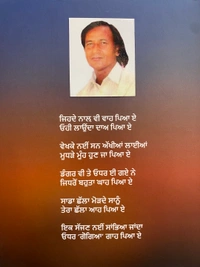 ਜਿਹਦੇ ਨਾਲ ਵੀ ਵਾਹ ਪਿਆ ਏ
ਓਹੀ ਲਾਉਂਦਾ ਦਾਅ ਪਿਆ ਏ
ਵੇਖਕੇ ਨਈਂ ਸਨ ਅੱਖੀਆਂ ਲਾਈਆਂ
ਮੂਧੜੇ ਮੂੰਹ ਹੁਣ ਜਾ ਪਿਆ ਏ
ਡੰਗਰ ਵੀ ਤੇ ਓਧਰ ਈ ਗਏ ਨੇ
ਜਿਧਰੋਂ ਬਹੁਤਾ ਘਾਹ ਪਿਆ ਏ
ਸਾਡਾ ਛੱਲਾ ਮੋੜਦੇ ਸਾਨੂੰ
ਤੇਰਾ ਛੱਲਾ ਆਹ ਪਿਆ ਏ
ਇਕ ਸੱਜਣ ਨਈਂ ਸਾਂਭਿਆ ਜਾਂਦਾ
ਓਧਰ 'ਗੋਗਿਆ' ਗਾਹ ਪਿਆ ਏ